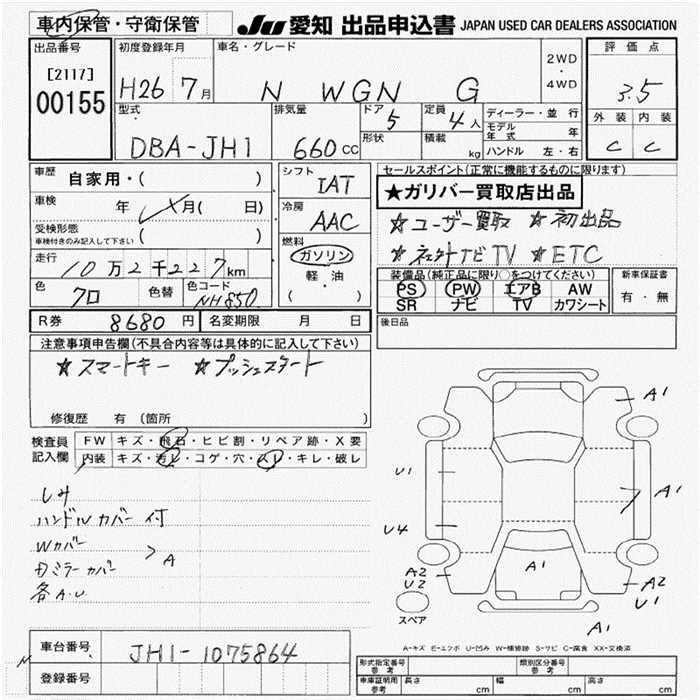 車内保管・守衛保管
JU 愛知 出品申込書 JAPAN USED CAR DEALERS ASSOCIATION
出品番号 初度登録年月 車名・グレード 評価点
[2117]
00155
H26 7月 N WGN G 2WD・4WD 3.5
型式 排気量 ドア 5 定員 4人 ディーラー・並行 外装 内装
DBA-JH1 660cc 形状 積載 kg モデル年式 年 C C
ハンドル 左・右
車歴 自家用・( ) シフト IAT セールスポイント(正常に機能するものに限ります)
車検 年 月( 日) 冷房 AAC ★ガリバー買取店出品
受検形態 車検付きのみ記入して下さい ( ) ☆ユーザー買取 ☆初出品
走行 10万2千227km 燃料 ガソリン 軽・油 ( ) ☆ TV ☆ETC
色 クロ 色替 色コード NH850 装備品(純正品に限り○をつけてください) 新車保証書
PS PW エアB AW 有・無
SR ナビ TV カワシート
R券 8680円 名変期限 月 日 後日品
注意事項申告欄(不具合内容等は具体的に記入して下さい)
☆スマートキー ☆プッシュスタート
修復歴 有(箇所 )
検査員記入欄 FW キズ・飛石・ヒビ割・リペア跡・X要
内装 キズ・汚レ・コゲ・穴・スレ・キレ・破レ
シミ
ハンドルカバー付
Wカバー
ミラーカバー > A
各A.U
A1
U1 A1
U4
A1
A2 U2 A2 U1
スペア
A1
A-キズ E-エクボ U-凹み W-補修跡 S-サビ C-腐食 XX-交換済
車台番号 JH1-1075864
登録番号
形式指定番号 参考 類別区分番号 参考
車庫証明用 参考 長さ cm 幅 cm 高さ cm